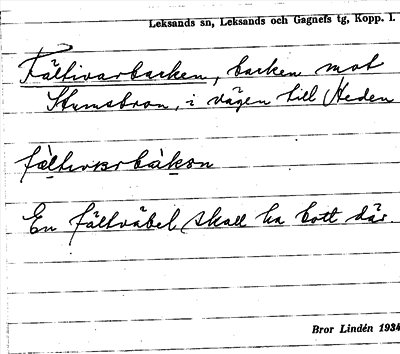 Leksands sn, Leksands och Gagnefs tg, Kopp. l.
Fältivarbacken, backen mot
Stumsbron, i vägen till Heden
fältivarbàkən
En fältväbel skall ha bott där.
Bror Lindén 1934